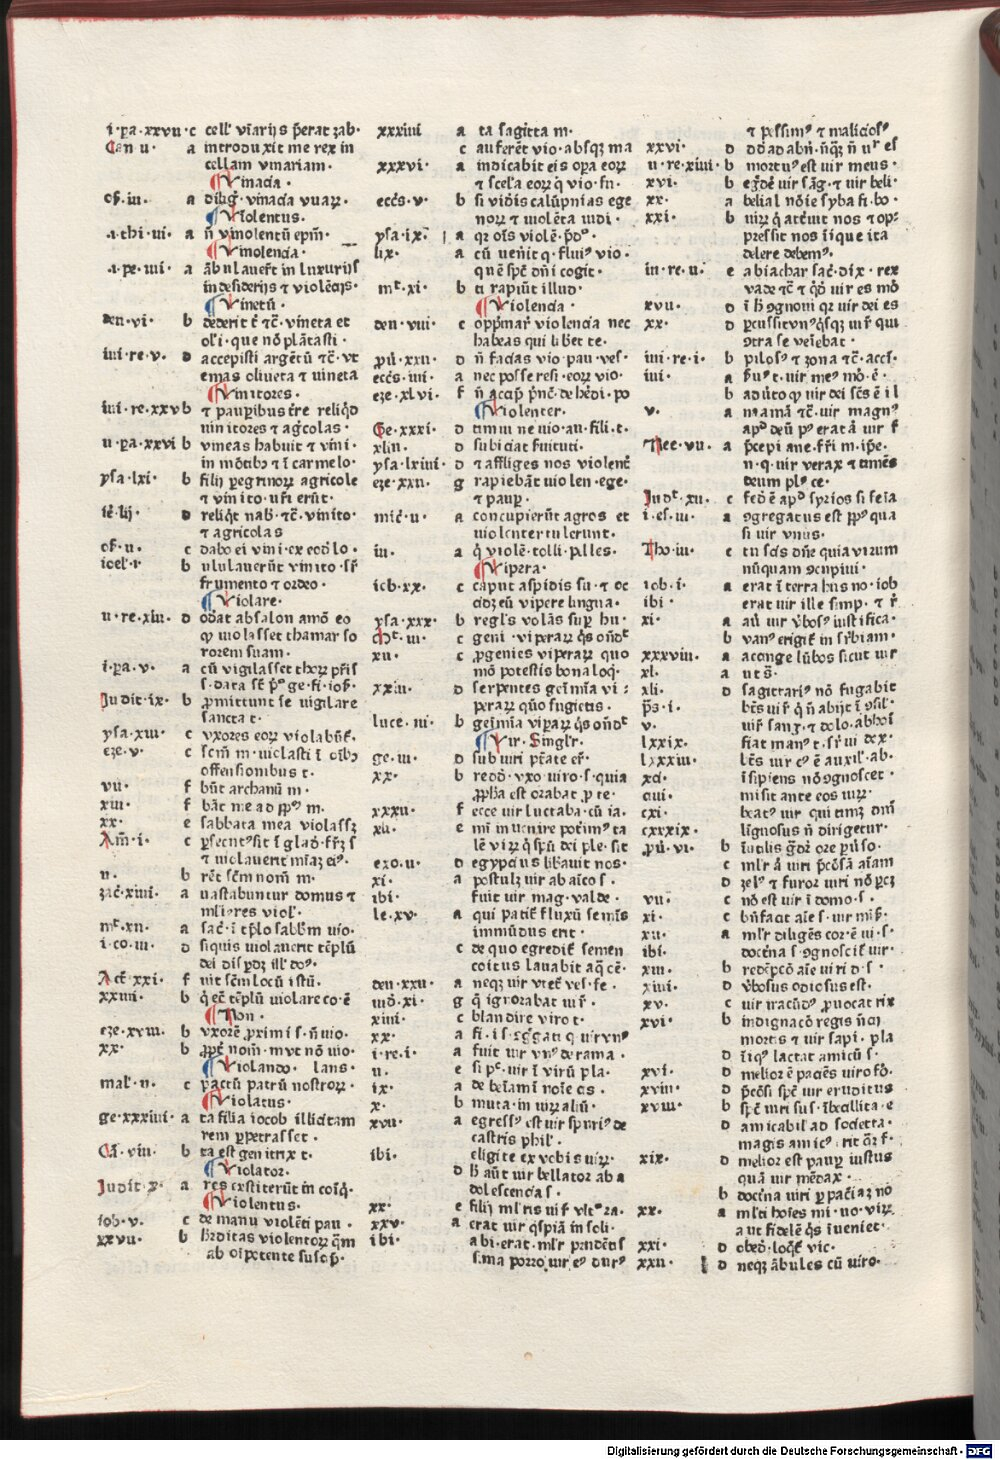 i·pa·xxvii·c cell' viarijs p̄erat zab·
Can ii· a introduxit me rex in
cellam vinariam·
¶ Vinacia·
os̄·iii· a diliḡt vinacia vuaꝝ·
¶ Violentus·
i·thi·iii· a n̄ vinolentū epm̄·
¶ Vinolencia·
i·pe·iiii· a ābulauer̄t in luxurijs
in desiderijs ⁊ violēcijs·
¶ Vinetū·
den·vi· b dederit t̄ ⁊c̄·vineta et
oli·que nō plātasti·
iiii·re·v· d accepisti argētū ⁊c̄·vt
emas oliueta ⁊ uineta
¶ Vinitores·
iiii·re·xxv b ⁊ pauꝑibus t̄re reliq̄d
uinitores ⁊ aḡcolas·
ii·pa·xxvi b vineas habuit ⁊ vini·
in mōtibꝰ ⁊ ī carmelo·
ysa·lxi· b filij ꝑegrinoꝝ agricole
⁊ vinito·ur̄i erūt·
d reliq̄t nab·⁊c̄·vinito·
⁊ agricolas
os̄·ii· c dabo ei vini·ex eod̄ lo·
ioel·i· b ululauerūt vinito·sr̄
frumento ⁊ ordeo·
¶ Violare·
ii·re·xiii· d odāt absalon amō eo
ꝙ uiolasset thamar so
rorem suam·
i·pa·v· a cū vigilasset thoꝝ pr̄is
Judit·ix· b ꝓmittunt se uigilare
sancta t·
ysa·xiii· c vxores eoꝝ violabūt·
eze·v· c scm̄ m·uiolasti ī oībꝰ
offensionibus t·
vii· f būt archanū m·
xiii· f bāt me ad pp̄m m·
xx· e sabbata mea violassꝫ
Am̄·i· c
⁊ uiolauerit
ii· b rēt scm̄ nom̄ m·
zac̄·xiiii· a uastabuntur domus ⁊
ml'ieres viol'·
mt̄·xii· a sac̄·ī tp̄lo sabbm̄ uio·
i·co·iii· d si quis uiolauerit tēplū
dei
Act̄·xxi· f uit scm̄ locū istū·
xxiiii· b q̄ et̄ tēplū uiolare co·ē
¶ Non·
eze·xviii· b vxorē ꝓximi s·n̄ uio·
xx· b ꝓpt̄ nom̄·mvt nō uio·
¶ Violando·lans·
mal'·ii· c pactū patrū nostroꝝ·
¶ Violatus·
ge·xxxiiii· a ta filia iocob illicitam
rem ꝑpetrasset·
Cā·viii· b ta est genitrix t·
¶ Violator·
Judit·x· a res exstiterūt in coīq̄·
¶ Violentus·
iob·v· c de manu violēti pau·
xxvii· b hr̄ditas violentoꝝ q̄m
ab oīpotente suscip̄·
xxxiiii a ta sagitta m·
c auferēt vio·absqꝫ ma
xxxvi· a indicabit eis opa eoꝝ
⁊ scel'a eoꝝ q̄ vio·fu·
ecc̄s·v· b si vid̄is calūpnias ege
noꝝ ⁊ uiolēta iudi·
ysa·ix· a qꝛ oīs violē·p̄dꝰ·
lix· a cū uen̄it q·fluiꝰ vio·
quē sp̄c dn̄i cogit·
mt̄·xi· b ti rapiūt illud·
¶ Violencia·
den·viii· c opp̄mar̄ violencia nec
habeas qui libet te·
pū·xxii· d n̄ facias vio·pau·ves·
ecc̄s·iiii· a nec posse resi·eoꝝ vio·
eze·xlvi· f n̄ accip̄ p̄nc̄·de hēdi·po
¶ Violenter·
Ge·xxxi· d timui ne uio·au·fili·t·
xliii· d subiciat seruituti·
ysa·lxiiii· d ⁊ affliges nos violent̄
eze·xxii· g rapiebāt uiolen·ege·
⁊ pauꝑ·
mic̄·ii· a concupierūt agros et
uiolenter tulerunt·
iii· a q̄ violē·tolli·pelles·
¶ Vipera·
iob·xx· c caput aspidis su·⁊ oc
cidꝫ eū vipere lingua·
ysa·xxx· b regl's volās suꝑ hu·
mt̄·iii· c geni·viperaꝝ q̄s ondt̄
xii· c ꝓgenies viperaꝝ quo
mō potestis bona loq̄·
xxiii· d serpentes geīmia vi:
peraꝝ quō fugietis·
luce·iii· b geīmia viꝑaꝝ q̄s ondt̄
¶ Vir·Singl'r·
ge·iii· d sub uiri ptāte er̄·
xx· b redd̄·vxo·uiro·s·quia
ꝓpha est orabat ꝓ te·
xxxii· f ecce uir luctaba·cū ia·
xli· e mī inuenire potīmꝰ ta
lē viꝝ q̄ spū dei ple·sit
exo·ii· d egypcius lib̄auit nos·
xi· a postulꝫ uir ab aīco s·
ibi· fuit uir mag·valde·
le·xv· a qui patit̄ fluxū semīs
inmūdus erit·
c de quo egredit̄ semen
coitus lauabit aq̄ cē·
den·xxii· a neqꝫ uir vtet̄ ves·fe·
iiid̄·xi· g q̄ ignorabat uir̄·
xiiii· c blandire viro t·
xx·
i·re·i· a fuit uir vnꝰ de rama·
ii· e si pc̄·uir ī virū pla·
ix· a de beīamī noīe cis·
x· b muta·in uiꝝ aliū·
xvii· a egressꝰ est uir spuriꝰ de
castris phil'·
ibi· eligite ex vobis uiꝝ·
d h̄ aūt uir bellator ab a
dolescencia s·
xx· e filij ml'ris uir̄ vltꝰ ra·
xxv· a erat uir q̄spiā in soli·
ibi· abi·erat·ml'r prudēns
s·ma porro uir eꝰ durꝰ
⁊ pessimꝰ ⁊ maliciosꝰ
xxvi· d
ii·re·xiiii· b mortuꝰ est uir meus·
xvi· b eḡde uir sāg·⁊ uir beli·
xx· a belial nōie syba fi·bo·
xxi· b uiꝝ q̄ att̄uit nos ⁊ op:
pressit nos īique ita
delere debemꝰ·
iii·re·ii· e abiachar sac̄·dix·rex
vade ⁊c̄ ⁊ q̄d uir es mō
xvii· d ī h̄ ꝯgnoui qꝛ uir dei es
xx· d ꝑcussitvnꝰq̄sqꝫ uir̄ qui
ꝯtra se veiebat·
iiii·re·i· b pilosꝰ ⁊ zona ⁊c̄·accs̄·
iiii· a
b
v· a naamā ⁊c̄·uir magnꝰ
apd̄ deū
Nee·vii· a p̄cepi ane·fr̄i m·ip̄e·
n·q·uir verax ⁊ timēs
deum plꝰ ce·
Judt̄·xii· c fed̄ ē apd̄ syrios si seia
i·es·iii· a ꝯgregatus est pp̄s qua
si uir vnus·
Tho·iii· e tu scis dn̄e quia virum
nūquam ꝯcupiui·
iob·i· a erat ī terra hus no·iob
ibi· erat uir ille simp·⁊ r̄
xi· a aū uir v̄bosꝰ iustifica·
b vanꝰ erigit̄ in sr̄biam·
xxxviii· a accinge lūbos sicut uir
xl· a ut s̄·
xli· d sagittariꝰ nō fugabit
p̄s·i· bt̄s uir̄ q̄ n̄ abijt ī ꝯsil'·
v· uir̄ sang·⁊ dolo·abhoī
lxxix· fiat manꝰ t·sr̄ ui dex·
lxxxiii· bt̄s uir cꝰ ē auxil'·ab·
xci· īsipiens nō ꝯgnoscet·
ciiii· misit ante eos uiꝝ·
cxi· beatꝰ uir qui timꝫ dnī
cxxxix· līgnosus n̄ dirigetur·
pū·vi· b
c ml'r ā uiri p̄cōsā aīam
d zelꝰ ⁊ furor uiri nō
vii· c nō est uir ī domo s·
xi· c bn̄facit aīe s·uir mis̄·
xii· a ml'r diligēs cor·ē ui·s·
ibi· doct̄na s·ꝯgnoscit̄ uir·
xiii· b redēpcō aīe uiri d·s·
xiiii· d v̄bosus odiosus est·
xv· c uir iracūdꝰ ꝓuocat rix
xvi· b indignacō regis n̄cij
mortis ⁊ uir sapi·pla
d īiqꝰ lactat amicū s·
xvi· d melior ē paciēs uiro fō·
xviii· d p̄cōsi sp̄c uir eruditus
xviii· b sp̄c uiri sus·
d amicabil' ad societa·
magis amicꝰ
xix· d melior est pauꝑ iustus
quā uir mēdax·
b doct̄na uiri ꝑ paciāꝫ nō
xx· a ml'ti hoīes mi·uo·viꝝ
aut fidelē q̄s īueniet·
xxi· d obed̄·loq̄t̄ vic·
xxii· d neqꝫ ābules cū uiro·
Digitalisierung gefördert durch die Deutsche Forschungsgemeinschaft - DFG